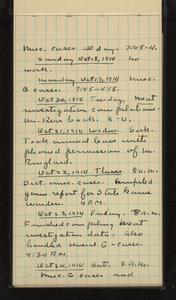 Misc. cases all day. 7:45-4.
Sunday Oct 18, 1914 no
work.
Monday Oct 19, 1914 Misc.
G cases. 7:45-4:15.
Oct 20, 1914 Tuesday, Meat
investigation compilations.
Mr. back. 8-4.
Oct 21, 1914 Wedn. Sick.
Took annual leave with
phoned permission of Mr.
Ringland.
Oct 22, 1914 Thurs. 8 a.m.
Dict. misc. cases. Compiled
game report for State Game
Warden. 4 P.M.
Oct 23, 1914 Friday. 8 a.m.
Finished compiling meat
investigation data. Also
handled several G cases.
4:30 P.M.
Oct 24, 1914 Sat. 8 A.M.
Misc. G cases and